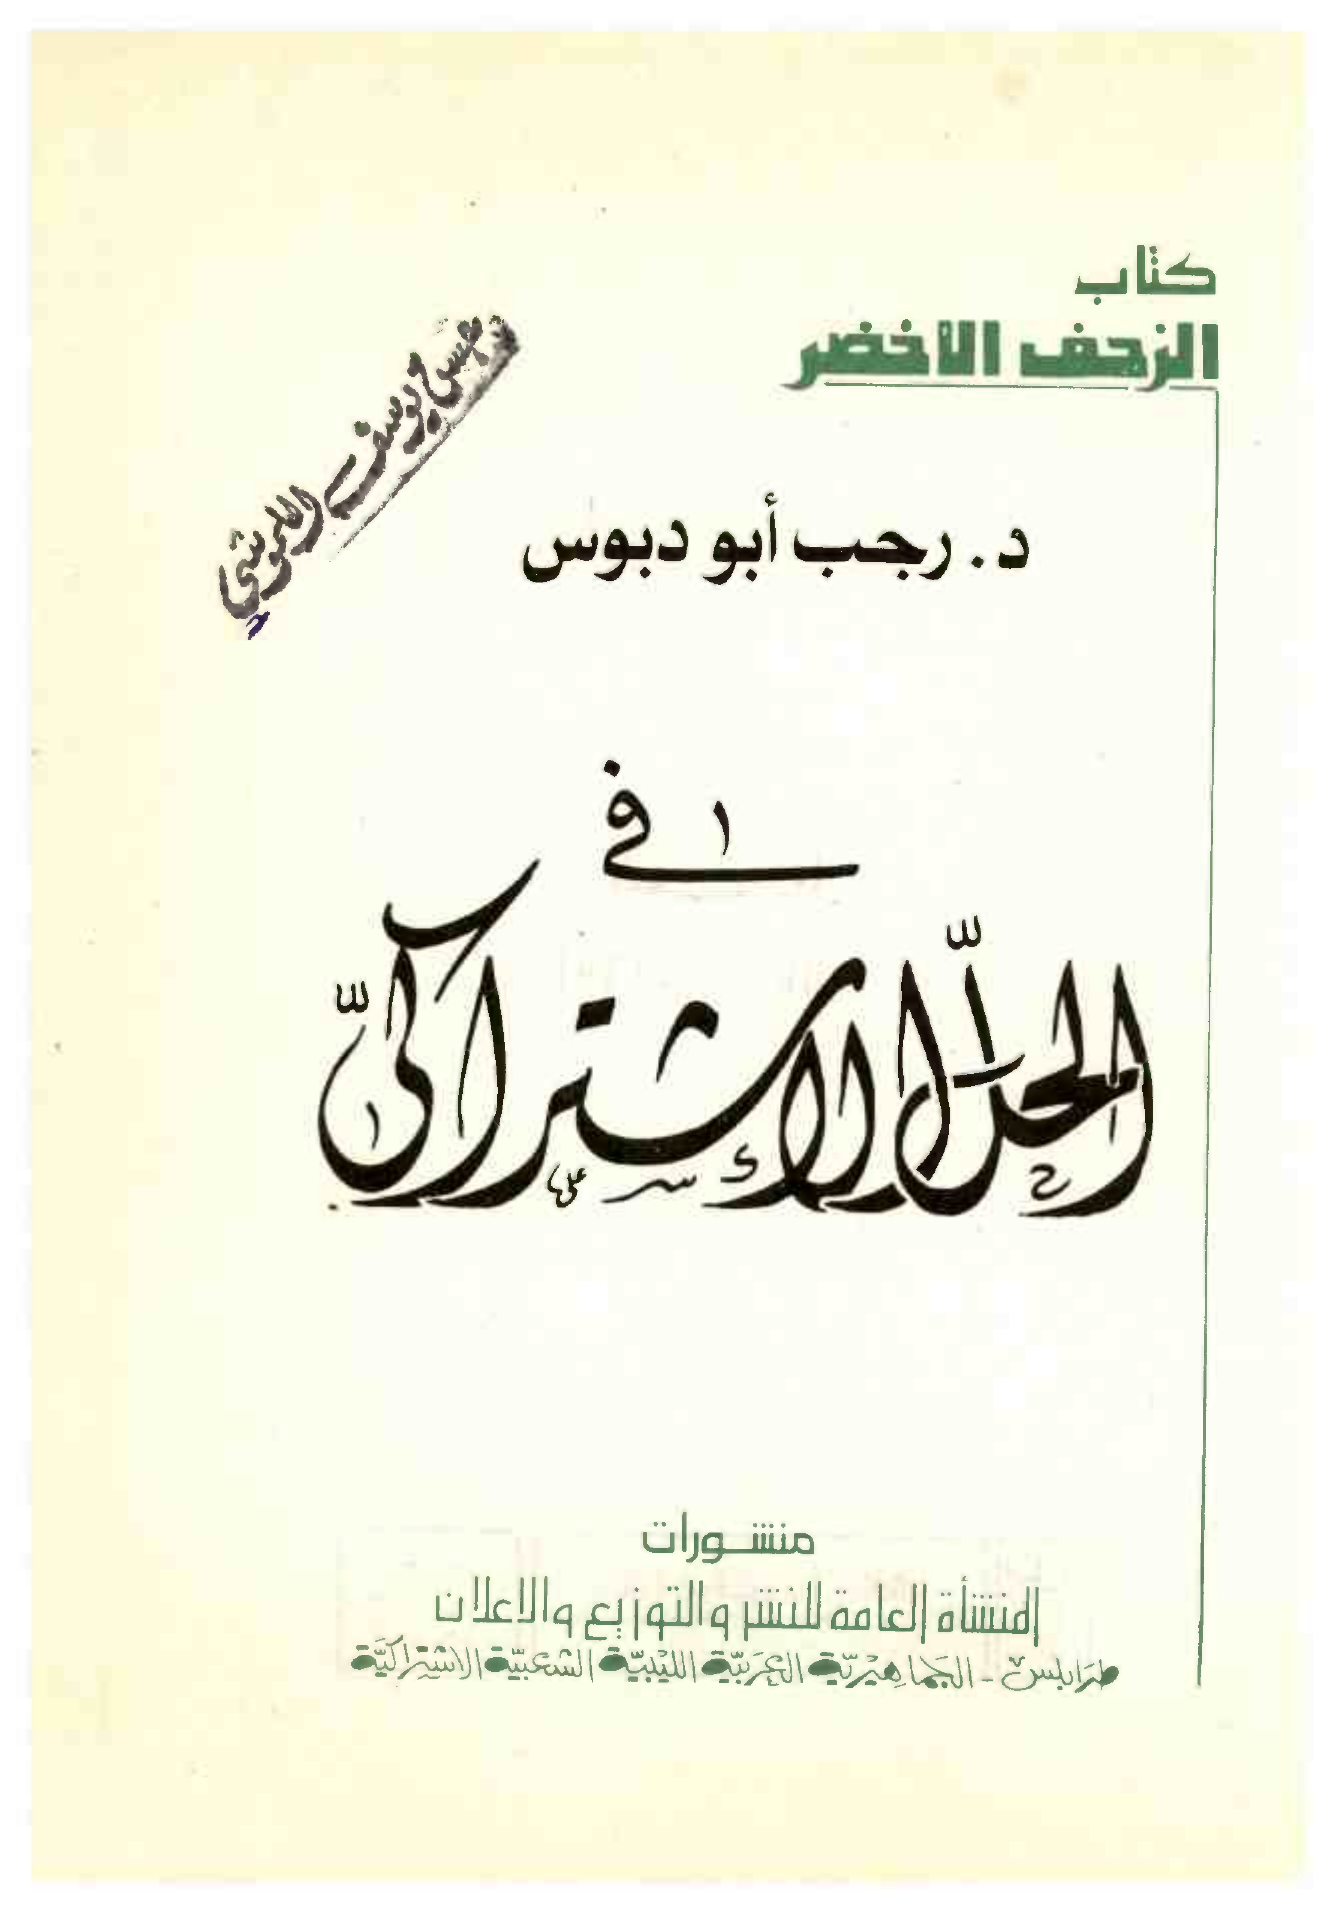 كتاب
الزحف الأخضر
يوسف
د. رجب أبو دبوس
في
الحل الإشتراكي
منشورات
المنشأة العامة للنشر والتوزيع والاعلان
طرابلس - الجماهيرية العربية الليبية الشعبية الاشتراكية